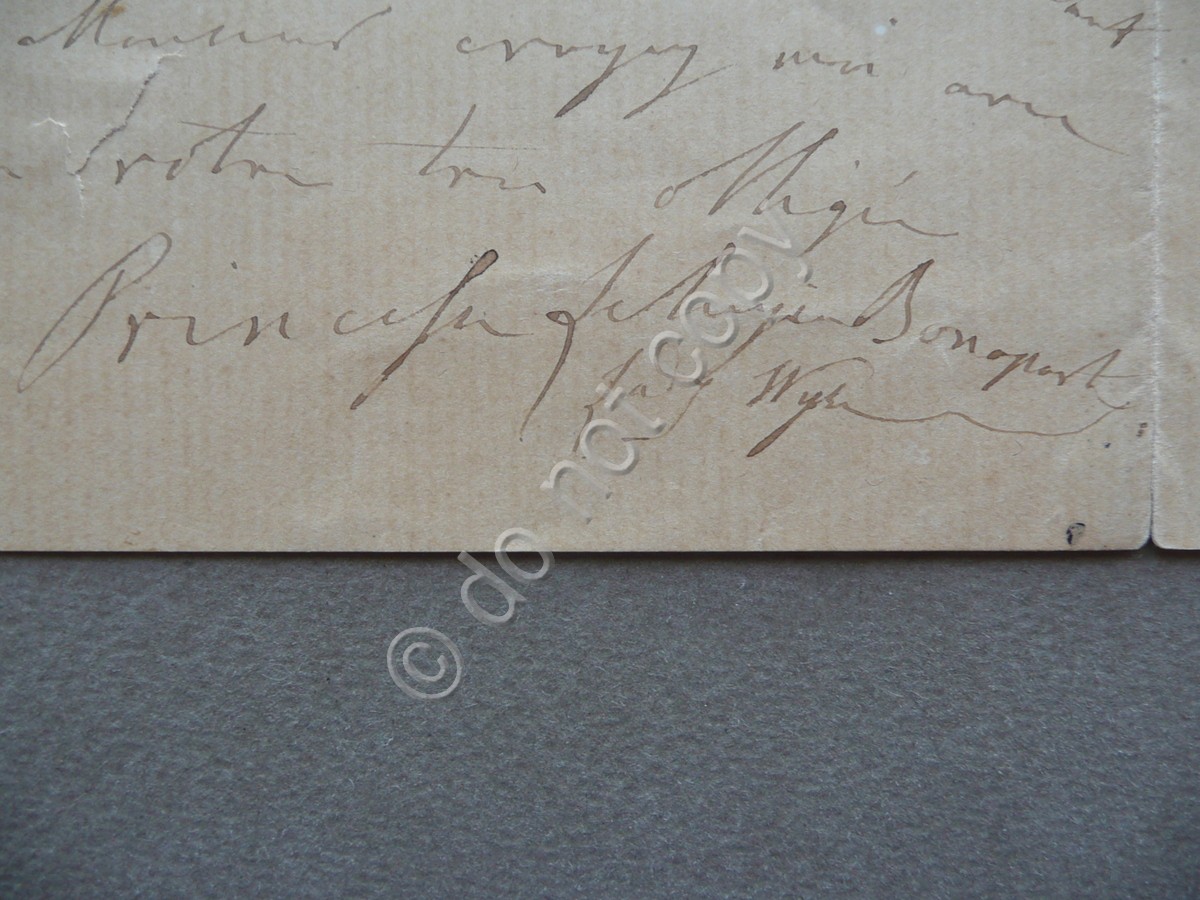 Monsieur croyez moi avec
votre très obligée
Princesse Letizia Bonaparte
Lady Wyse
© do not copy